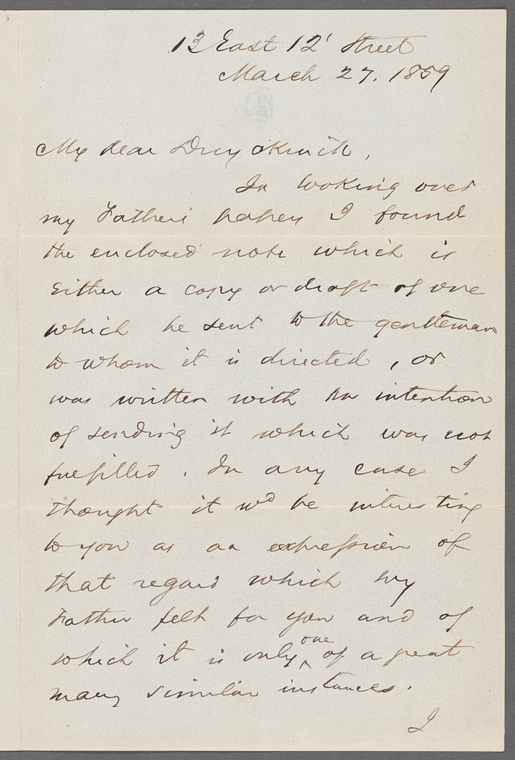 13 East 12' Street
March 27. 1859
My dear Duyckinck,
In looking over
my Father's papers I found
the enclosed note which is
either a copy or draft of one
which he sent to the gentleman
to whom it is directed, or
was written with an intention
of sending it which was not
fulfilled. In any case I
thought it wd be interesting
to you as an expression of
that regard which my
Father felt for you and of
which it is only one of a great
many similar instances.
I